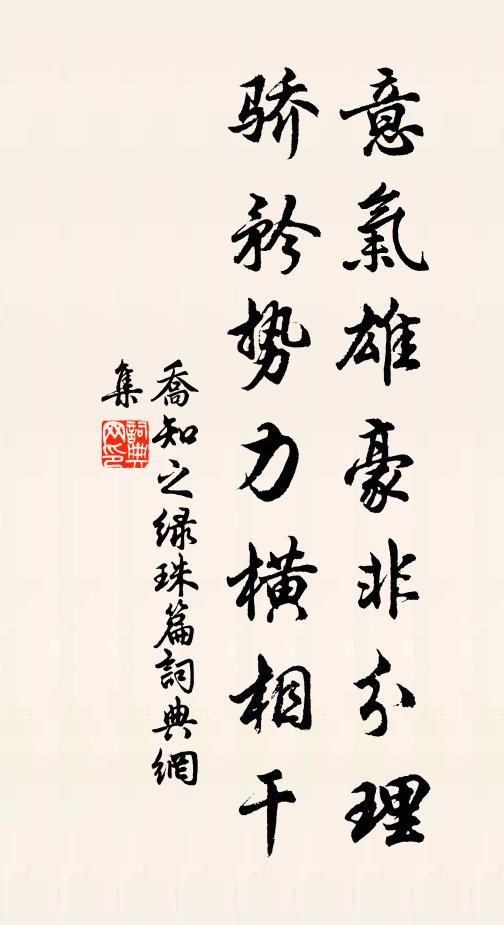 意氣雄豪非分理
驕矜勢力橫相干
喬知之綠珠篇詞典網
集
詞典
网印